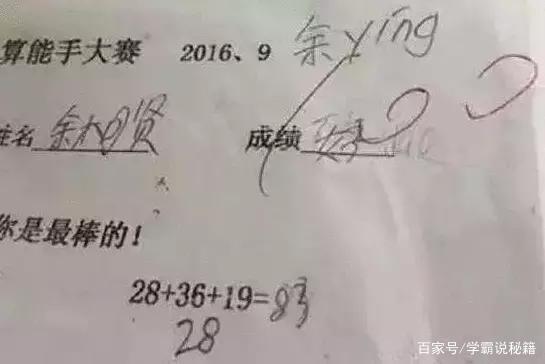 算能手大赛 2016、9 余ying
姓名 余 贤 成绩
你是最棒的！
28+36+19=83
28
百家号/学霸说秘籍